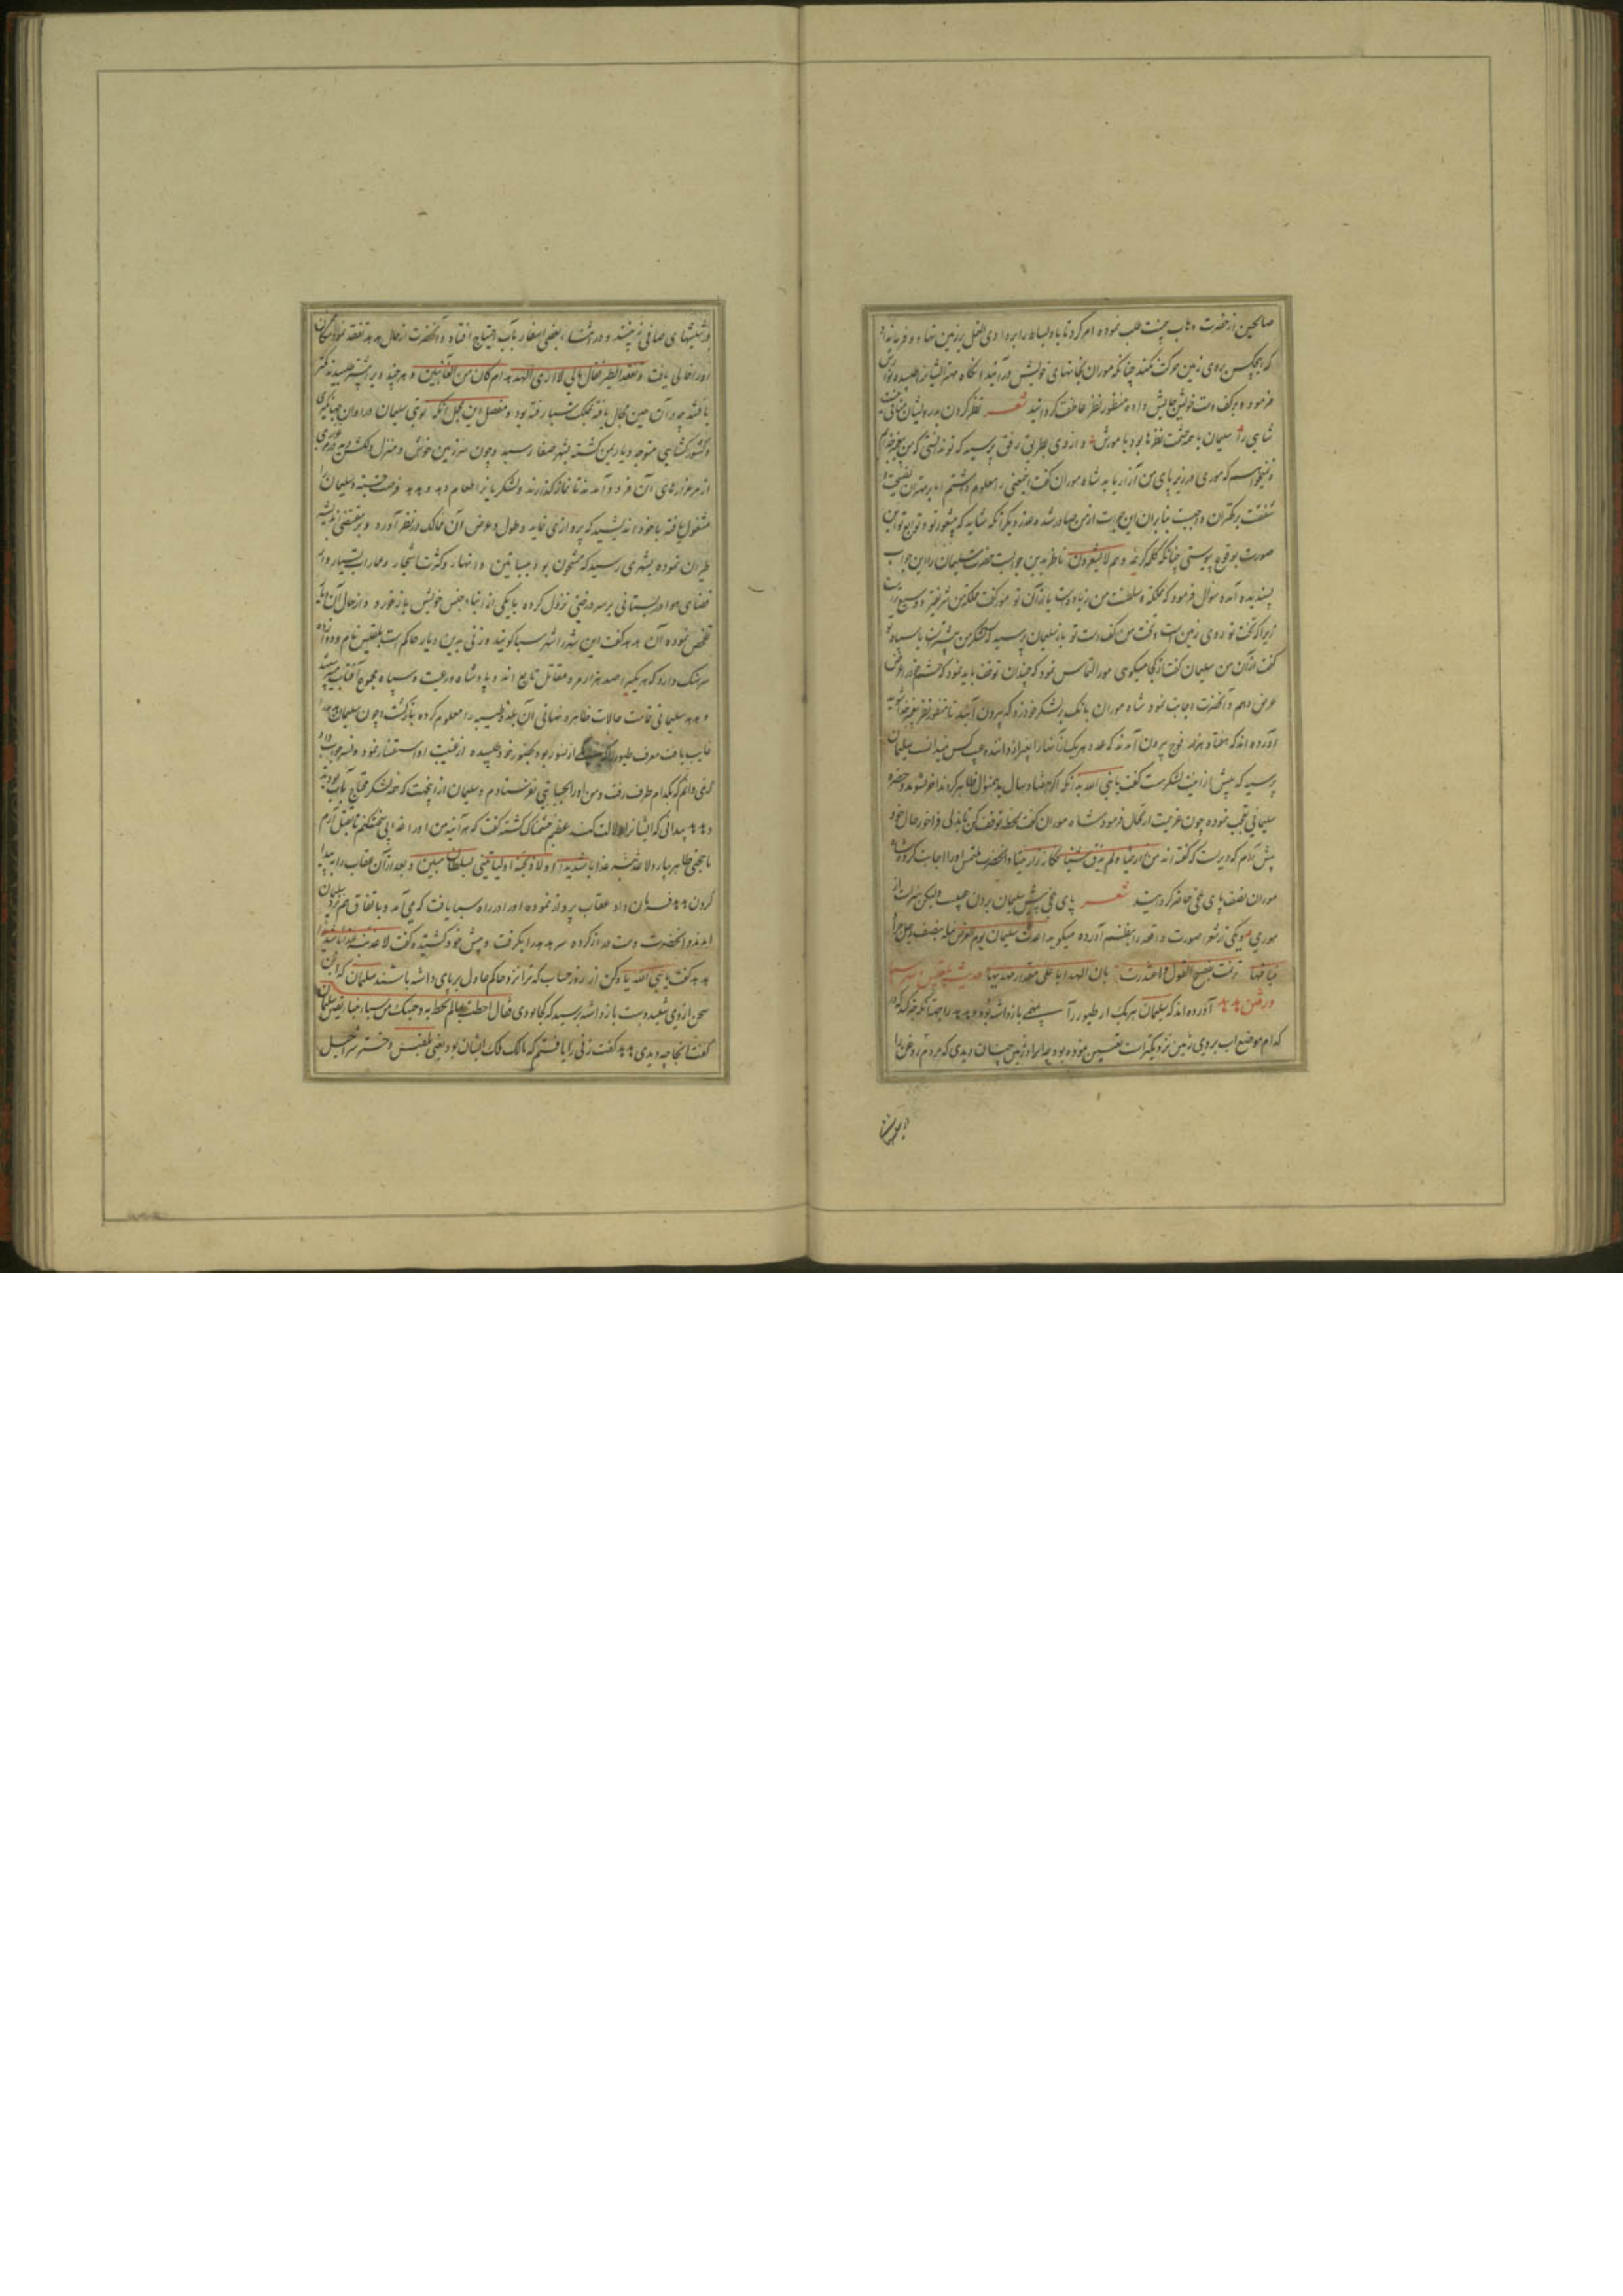 صالحین از حضرت وهاب بیمنت طلب نموده امر کرد تا باد بساط را بر وادی النمل بر زمین نهاد و فرمان داد
که هیچکس بروی زمین حرکت نکند چنانکه موران بخانهای خویش درآیند آنگاه مهتر ایشانرا طلبیده
فرمود و بر کف دست خویش جایش داده منظور نظر عاطفت گردانید شعر نظر کردن بدرویشان منافی
شاهی را سلیمان با همه حشمت نظرها بود با مورش و از وی بطریق رفق پرسید که تو ندانستی که من پیغمبر خدایم
و نمیخواهم که موری در زیر پای من آزار یابد شاه موران گفت اینمعنی را معلوم داشتم اما بر مهتران نصیحت و
شفقت بر کهتران واجبست بنابران این جرات از من صادر شد و عذر دیگر آنکه شاید که بیشعور تو و توابع تو این
صورت بوقوع پیوستی چنانکه کلمه کریمه و هم لا یشعرون ناظر بدین جوابست حضرت سلیمان را این جواب
پسندیده آمده سوال فرمود که مملکت و سلطنت من زیاده است یا از آن تو مور گفت مملکت من
زیرا که تخت تو بروی زمین است و تخت من کف دست تو باز سلیمان پرسید که لشکر من بیشترست یا سپاه تو
گفت از آن من سلیمان گفت از کجا میگویی مور التماس نمود که چندان توقف باید نمود که حشم خود را عرض
عرض دهم و آنحضرت اجابت نمود شاه موران بانک بر لشکر خود زد که بیرون آیید تا منظور نظر پیغمبر خدا شوید
آورده اند که هفتاد هزار فوج بیرون آمدند که عدد هر یک از آنها را بغیر از داننده غیب کس نمیدانست سلیمان
پرسید که بیش از اینت لشکر هست گفت یا نبی الله بدانکه اگر هفتاد سال بدینمنوال ظاهر گردند آخر نشوند و حضرت
سلیمانی تعجب نموده چون عزیمت ارتحال فرمود شاه موران گفت لحظه توقف کن تا نزلی فراخور حال خود
پیش آرم که دیریست که گفته اند من زار حیا و لم یذق شیئا فکانما زار میتا و آنحضرت ملتمس او را اجابت کرد و شاه
موران نصف پای ملخی حاضر گردانید شعر پای ملخی پیش سلیمان بردن عیبست ولیکن هنرست از
موری و یکی از شعرا صورت واقعه را بنظم آورده میگوید اهدت سلیمان یوم العرض نملة بنصف رجل جراد
ترنمت بفصیح القول و اعتذرت بان الهدایا علی مقدار مهدیها حدیث بلقیس و
و رفتن هدهد آورده اند که سلیمان هر یک از طیور را بمهمی بازداشته بود و هدهد را جهت آنکه خبر کند که در
کدام موضع آب بروی زمین نزدیکتر است تعیین نموده بود چه او آب را در زمین چنان دیدی که مردم روغن را
در شیشهای صافی نه بینند و در اثناء بعضی اسفار بآب احتیاج افتاد و آنحضرت از حال هدهد تفقد نموده مکان
او را خالی یافت و تفقد الطیر فقال مالی لا اری الهدهد ام کان من الغائبین و هر چند ویرا بیشتر طلبیدند کمتر
یافتند چه در آن حین مجال یافته بملک سبا رفته بود و مفصل این مجمل آنکه نوبتی سلیمان در اوان جهانگیری
و کشورگشایی متوجه دیار یمن گشته بشهر صنعا رسید و چون سرزمین خوش و منزل دلکش بود
از مرغزارهای آن فرود آمدند تا نماز گذارند و لشکر یانرا طعام دهد و هدهد فرصت جسته و سلیمان را
مشغول یافته با خود اندیشید که پروازی نماید و طول و عرض آن ممالک در نظر آورد و بر مقتضی اندیشه
طیران نموده بشهری رسید که مشحون بود ببساتین و انهار و کثرت اشجار و عمارات بسیار و از
فضای هوا در بستانی بر سر درختی نزول کرده با یکی از ابناء جنس خویش باز خورد و از حال آن
تفحص نموده آن هدهد گفت این شهر را شهر سبا گویند و زنی بدین دیار حاکم است بلقیس نام و دوازده
سرهنک دارد که هر یکیرا صد هزار مرد مقاتل تابع اند و پادشاه و رعیت و سپاه مجموع آفتاب میپرستند
و هدهد سلیمانی تمامت حالات ظاهر و نهانی آن بلده طیبه را معلوم کرده بازگشت و چون سلیمان هدهد را
غایب یافت معرف طیور را که از نسور بود بحضور خود طلبیده از غیبت او استفسار نمود و نسر جواب داد
که نمی دانم که بکدام طرف رفت و من او را بجایی نفرستادم و سلیمان از اینجهت که همه لشکر محتاج بآب بودند
و هدهد پیدا نی که ایشانرا دلالت کند عظیم خشمناک گشته گفت که هر آینه من او را عذابی سخت کنم تا بقتل آرم
یا حجتی ظاهر بیارد لاعذبنه عذابا شدیدا او لاذبحنه او لیأتینی بسلطان مبین و بعد از آن عقاب را به پیدا
کردن هدهد فرمان داد عقاب پرواز نموده او را در راه سبا یافت که می آمد و باتفاق هم نزد سلیمان
آمدند و آنحضرت دست دراز کرده سر هدهد را بگرفت و پیش خود کشیده گفت لاعذبنه عذابا شدیدا
هدهد گفت یا نبی الله یاد کن از روز حساب که ترازو و حاکم عادل بر پای داشته باشند سلیمان که این
سخن از وی شنید دست بازداشته پرسید که کجا بودی فقال احطت بما لم تحط به و جئتک من سبأ بنبأ یقین سلیمان
گفت آنجا چه دیدی هدهد گفت زنی را یافتم که مالک ملک ایشان بود یعنی بلقیس دختر شراحیل